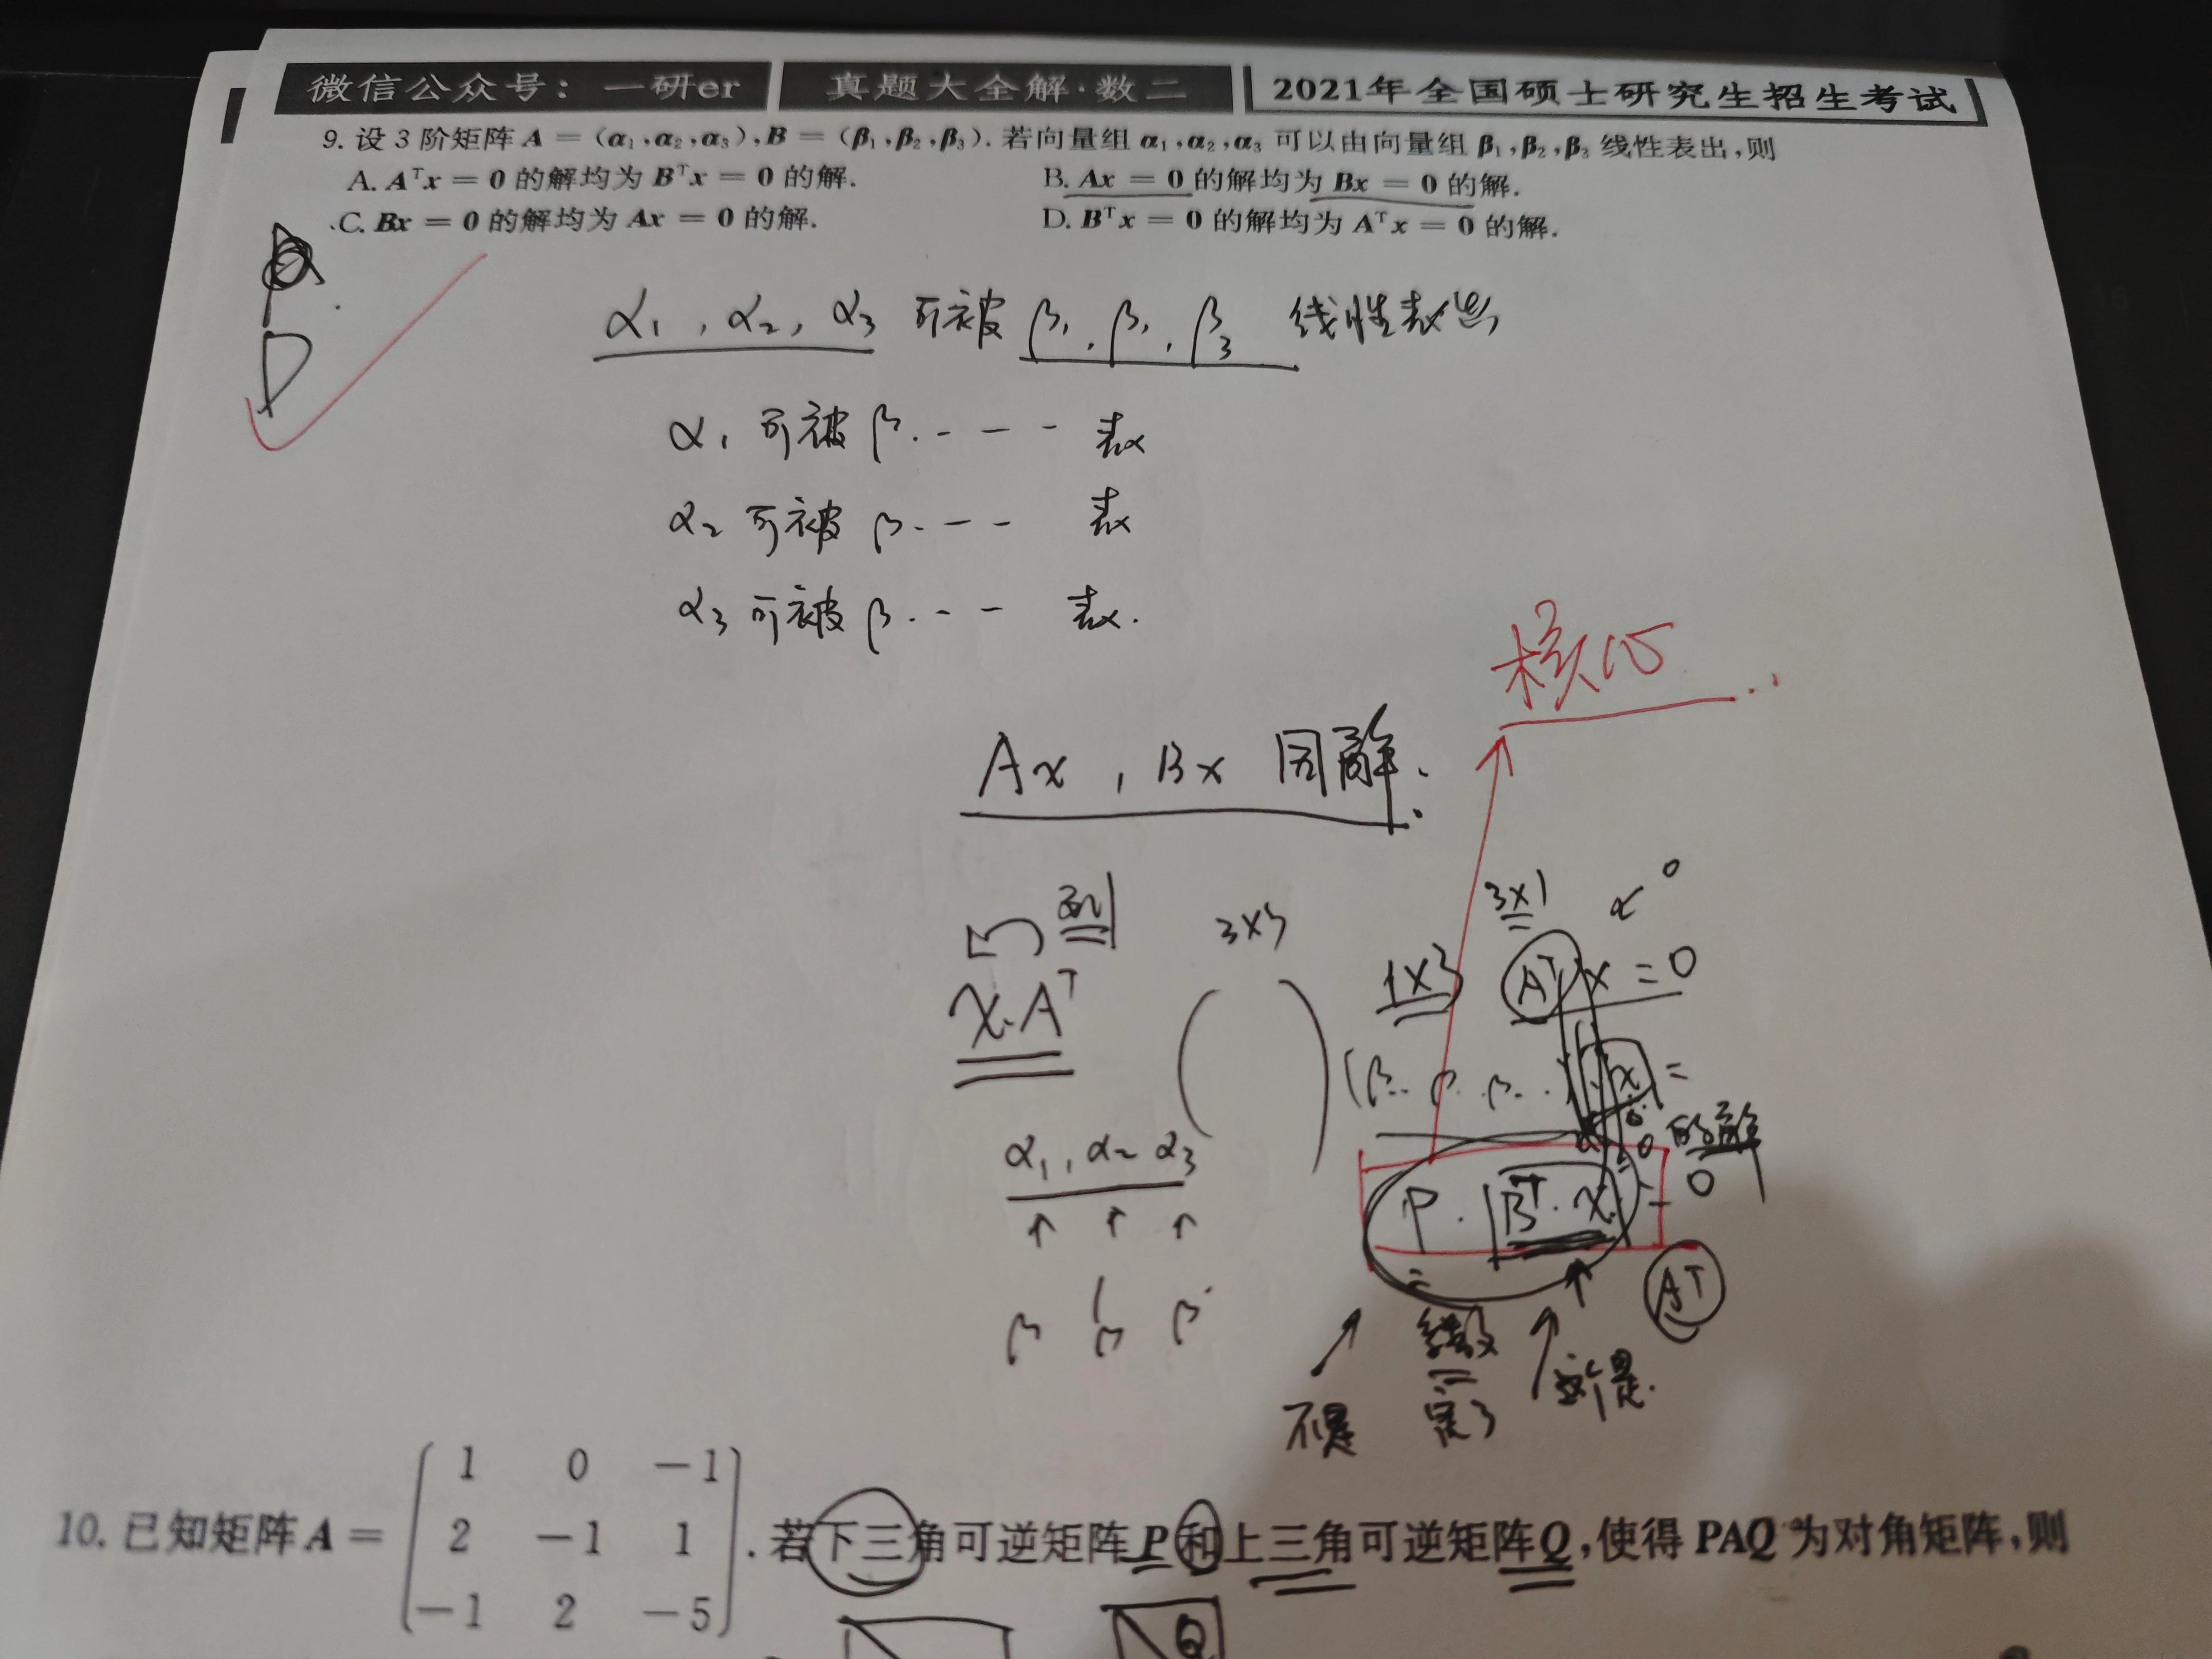 微信公众号：一研er 真题大全解·数二 2021年全国硕士研究生招生考试
9. 设 3 阶矩阵 A = (α₁,α₂,α₃),B = (β₁,β₂,β₃). 若向量组 α₁,α₂,α₃ 可以由向量组 β₁,β₂,β₃ 线性表出,则
A. Aᵀx = 0 的解均为 Bᵀx = 0 的解. B. Ax = 0 的解均为 Bx = 0 的解.
C. Bx = 0 的解均为 Ax = 0 的解. D. Bᵀx = 0 的解均为 Aᵀx = 0 的解.
D
α₁, α₂, α₃ 可被 β₁, β₁, β₃ 线性表出
α₁ 可被 β. - - - 表
α₂ 可被 β. - - 表
α₃ 可被 β. - - 表.
核心
Ax , Bx 同解.
列 3×3 3×1
x·Aᵀ 1×3 Aᵀx = 0
(β.. β. β. ..) x =
α₁, α₂ α₃ 的解
↑ ↑ ↑ P · Bᵀ·x = 0
β β β Aᵀ
不是 系数 这个是.
10. 已知矩阵 A = ( 1 0 −1
2 −1 1
−1 2 −5 ). 若下三角可逆矩阵 P 和上三角可逆矩阵 Q,使得 PAQ 为对角矩阵,则
Q